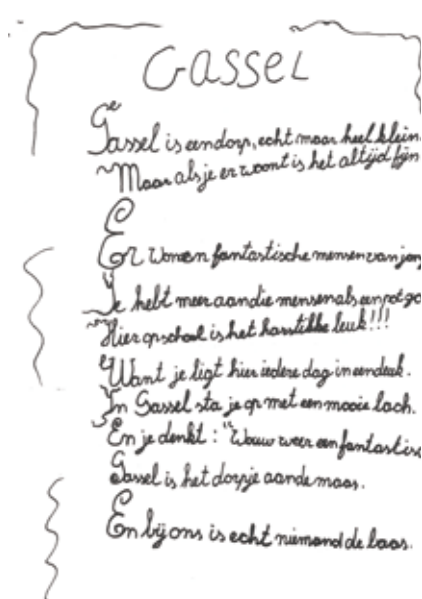 Gassel
Gassel is een dorp, echt maar heel klein.
Maar als je er woont is het altijd fijn
Er wonen fantastische mensen van jong
Je hebt meer aan die mensen als een pot go
Hier op school is het harstikke leuk!!!
Want je ligt hier iedere dag in een deuk.
In Gassel sta je op met een mooie lach.
En je denkt: "Wouw weer een fantastisc
Gassel is het dorpje aan de maas.
En bij ons is echt niemand de baas.